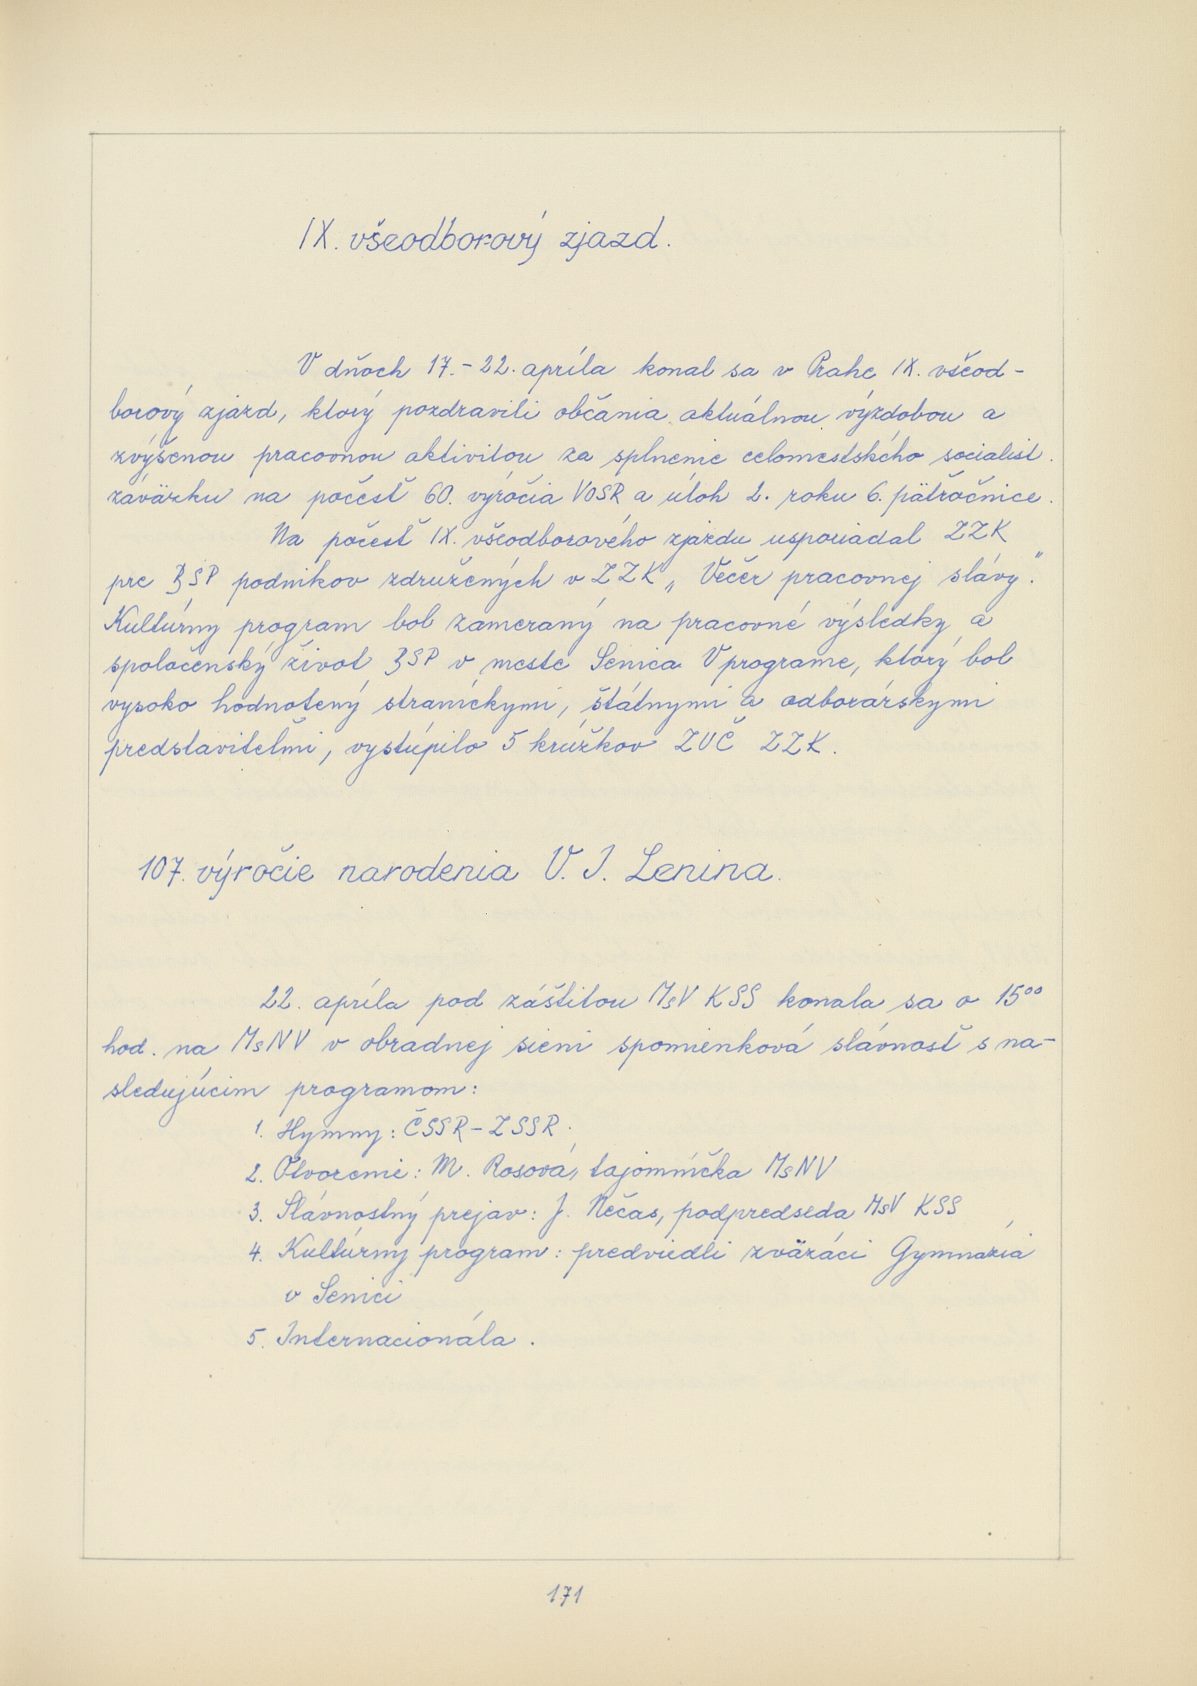 IX. všeodborový zjazd.
V dňoch 17.-22. apríla konal sa v Prahe IX. všeod-
borový zjazd, ktorý pozdravili občania aktuálnou výzdobou a
zvýšenou pracovnou aktivitou za splnenie celomestského socialist.
záväzku na počesť 60. výročia VOSR a úloh 2. roku 6. päťročnice.
Na počesť IX. všeodborového zjazdu usporiadal ZZK
pre BSP podnikov združených v ZZK „Večer pracovnej slávy".
Kultúrny program bol zameraný na pracovné výsledky a
spoločenský život BSP v meste Senica. V programe, ktorý bol
vysoko hodnotený straníckymi, štátnymi a odborárskymi
predstaviteľmi, vystúpilo 5 krúžkov ZUČ ZZK.
107. výročie narodenia V. I. Lenina.
22. apríla pod záštitou MsV KSS konala sa o 15⁰⁰
hod. na MsNV v obradnej sieni spomienková slávnosť s na-
sledujúcim programom:
1. Hymny: ČSSR - ZSSR.
2. Otvorenie: M. Rosová, tajomníčka MsNV
3. Slávnostný prejav: J. Nečas, podpredseda MsV KSS
4. Kultúrny program: predviedli zväzáci Gymnázia
v Senici
5. Internacionála.
171